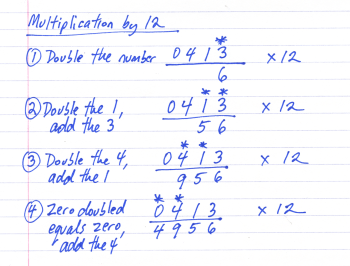 Multiplication by 12
① Double the number 0 4 1 3 x 12
6
② Double the 1, 0 4 1 3 x 12
add the 3 5 6
③ Double the 4, 0 4 1 3 x 12
add the 1 9 5 6
④ Zero doubled 0 4 1 3 x 12
equals zero, 4 9 5 6
add the 4